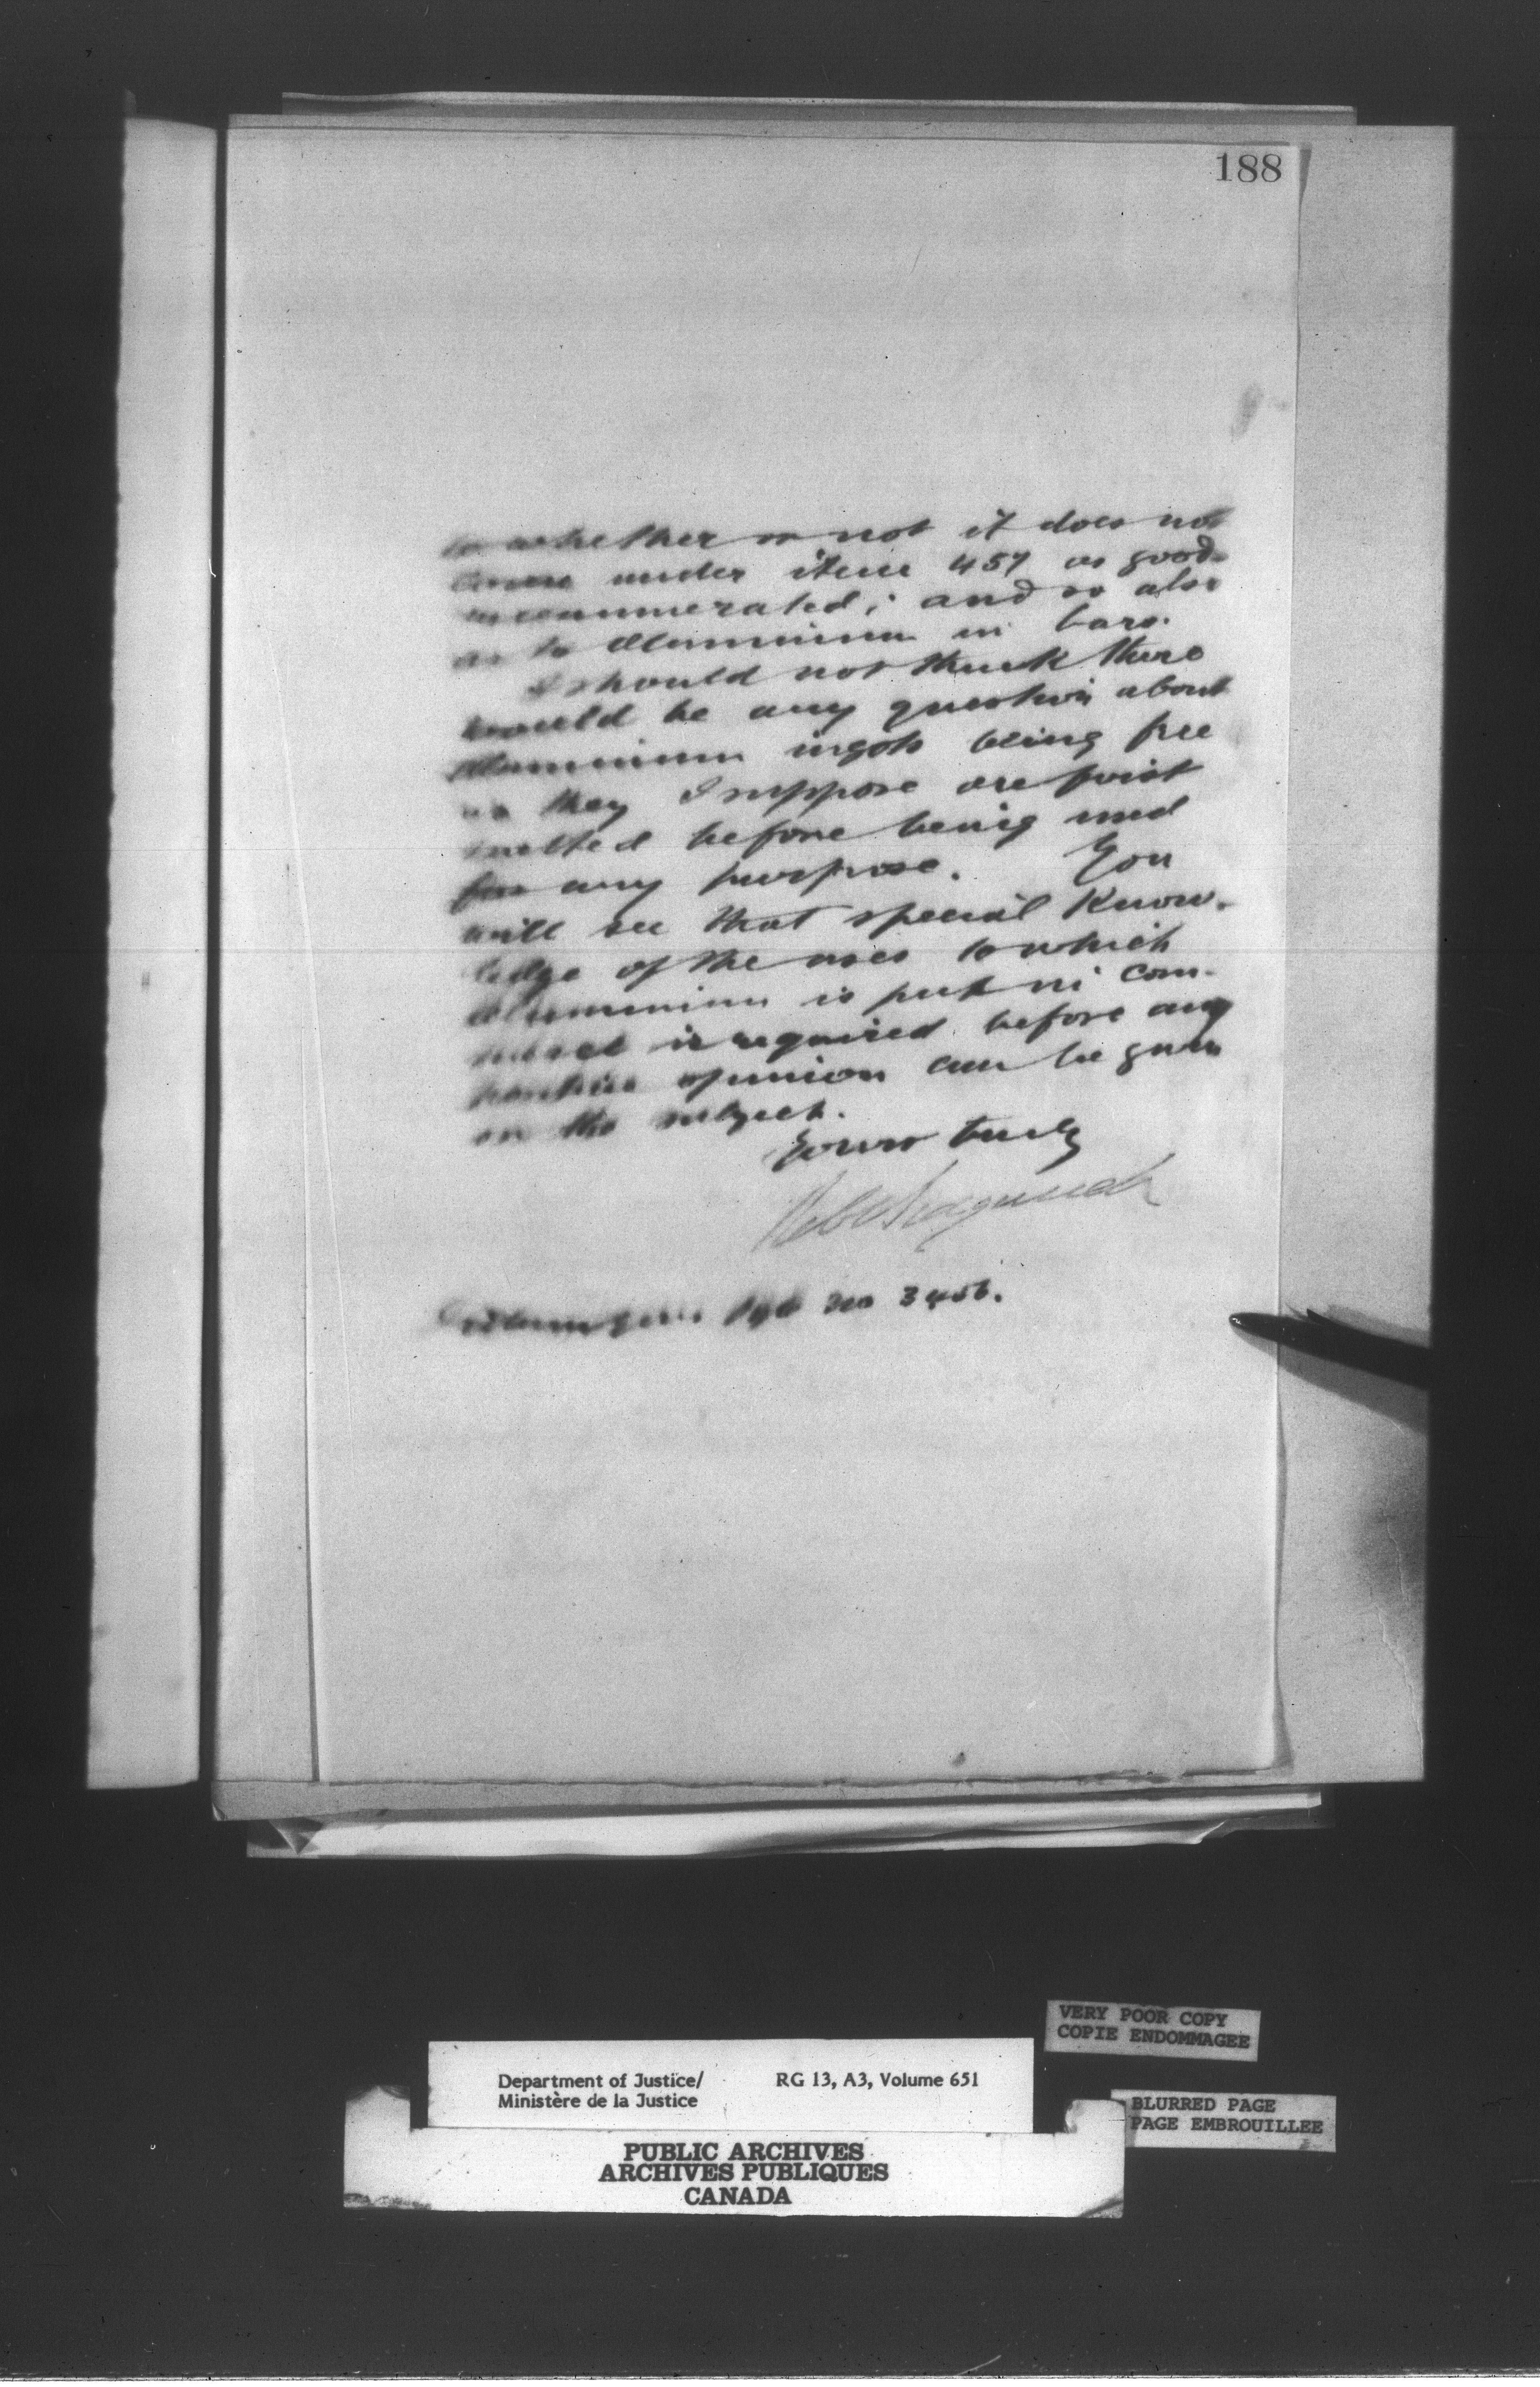 188
to whether or not it does not
come under item 457 as goods
unenumerated; and so also
as to Aluminium in bars.
I should not think there
would be any question about
Aluminium ingots being free
as they I suppose are first
melted before being used
for any purpose. You
will see that special Know-
ledge of the uses to which
Aluminium is put in com-
merce is required before any
positive opinion can be given
on the subject.
Yours truly
No 3456.
VERY POOR COPY
COPIE ENDOMMAGEE
Department of Justice/ RG 13, A3, Volume 651
Ministère de la Justice
BLURRED PAGE
PAGE EMBROUILLEE
PUBLIC ARCHIVES
ARCHIVES PUBLIQUES
CANADA